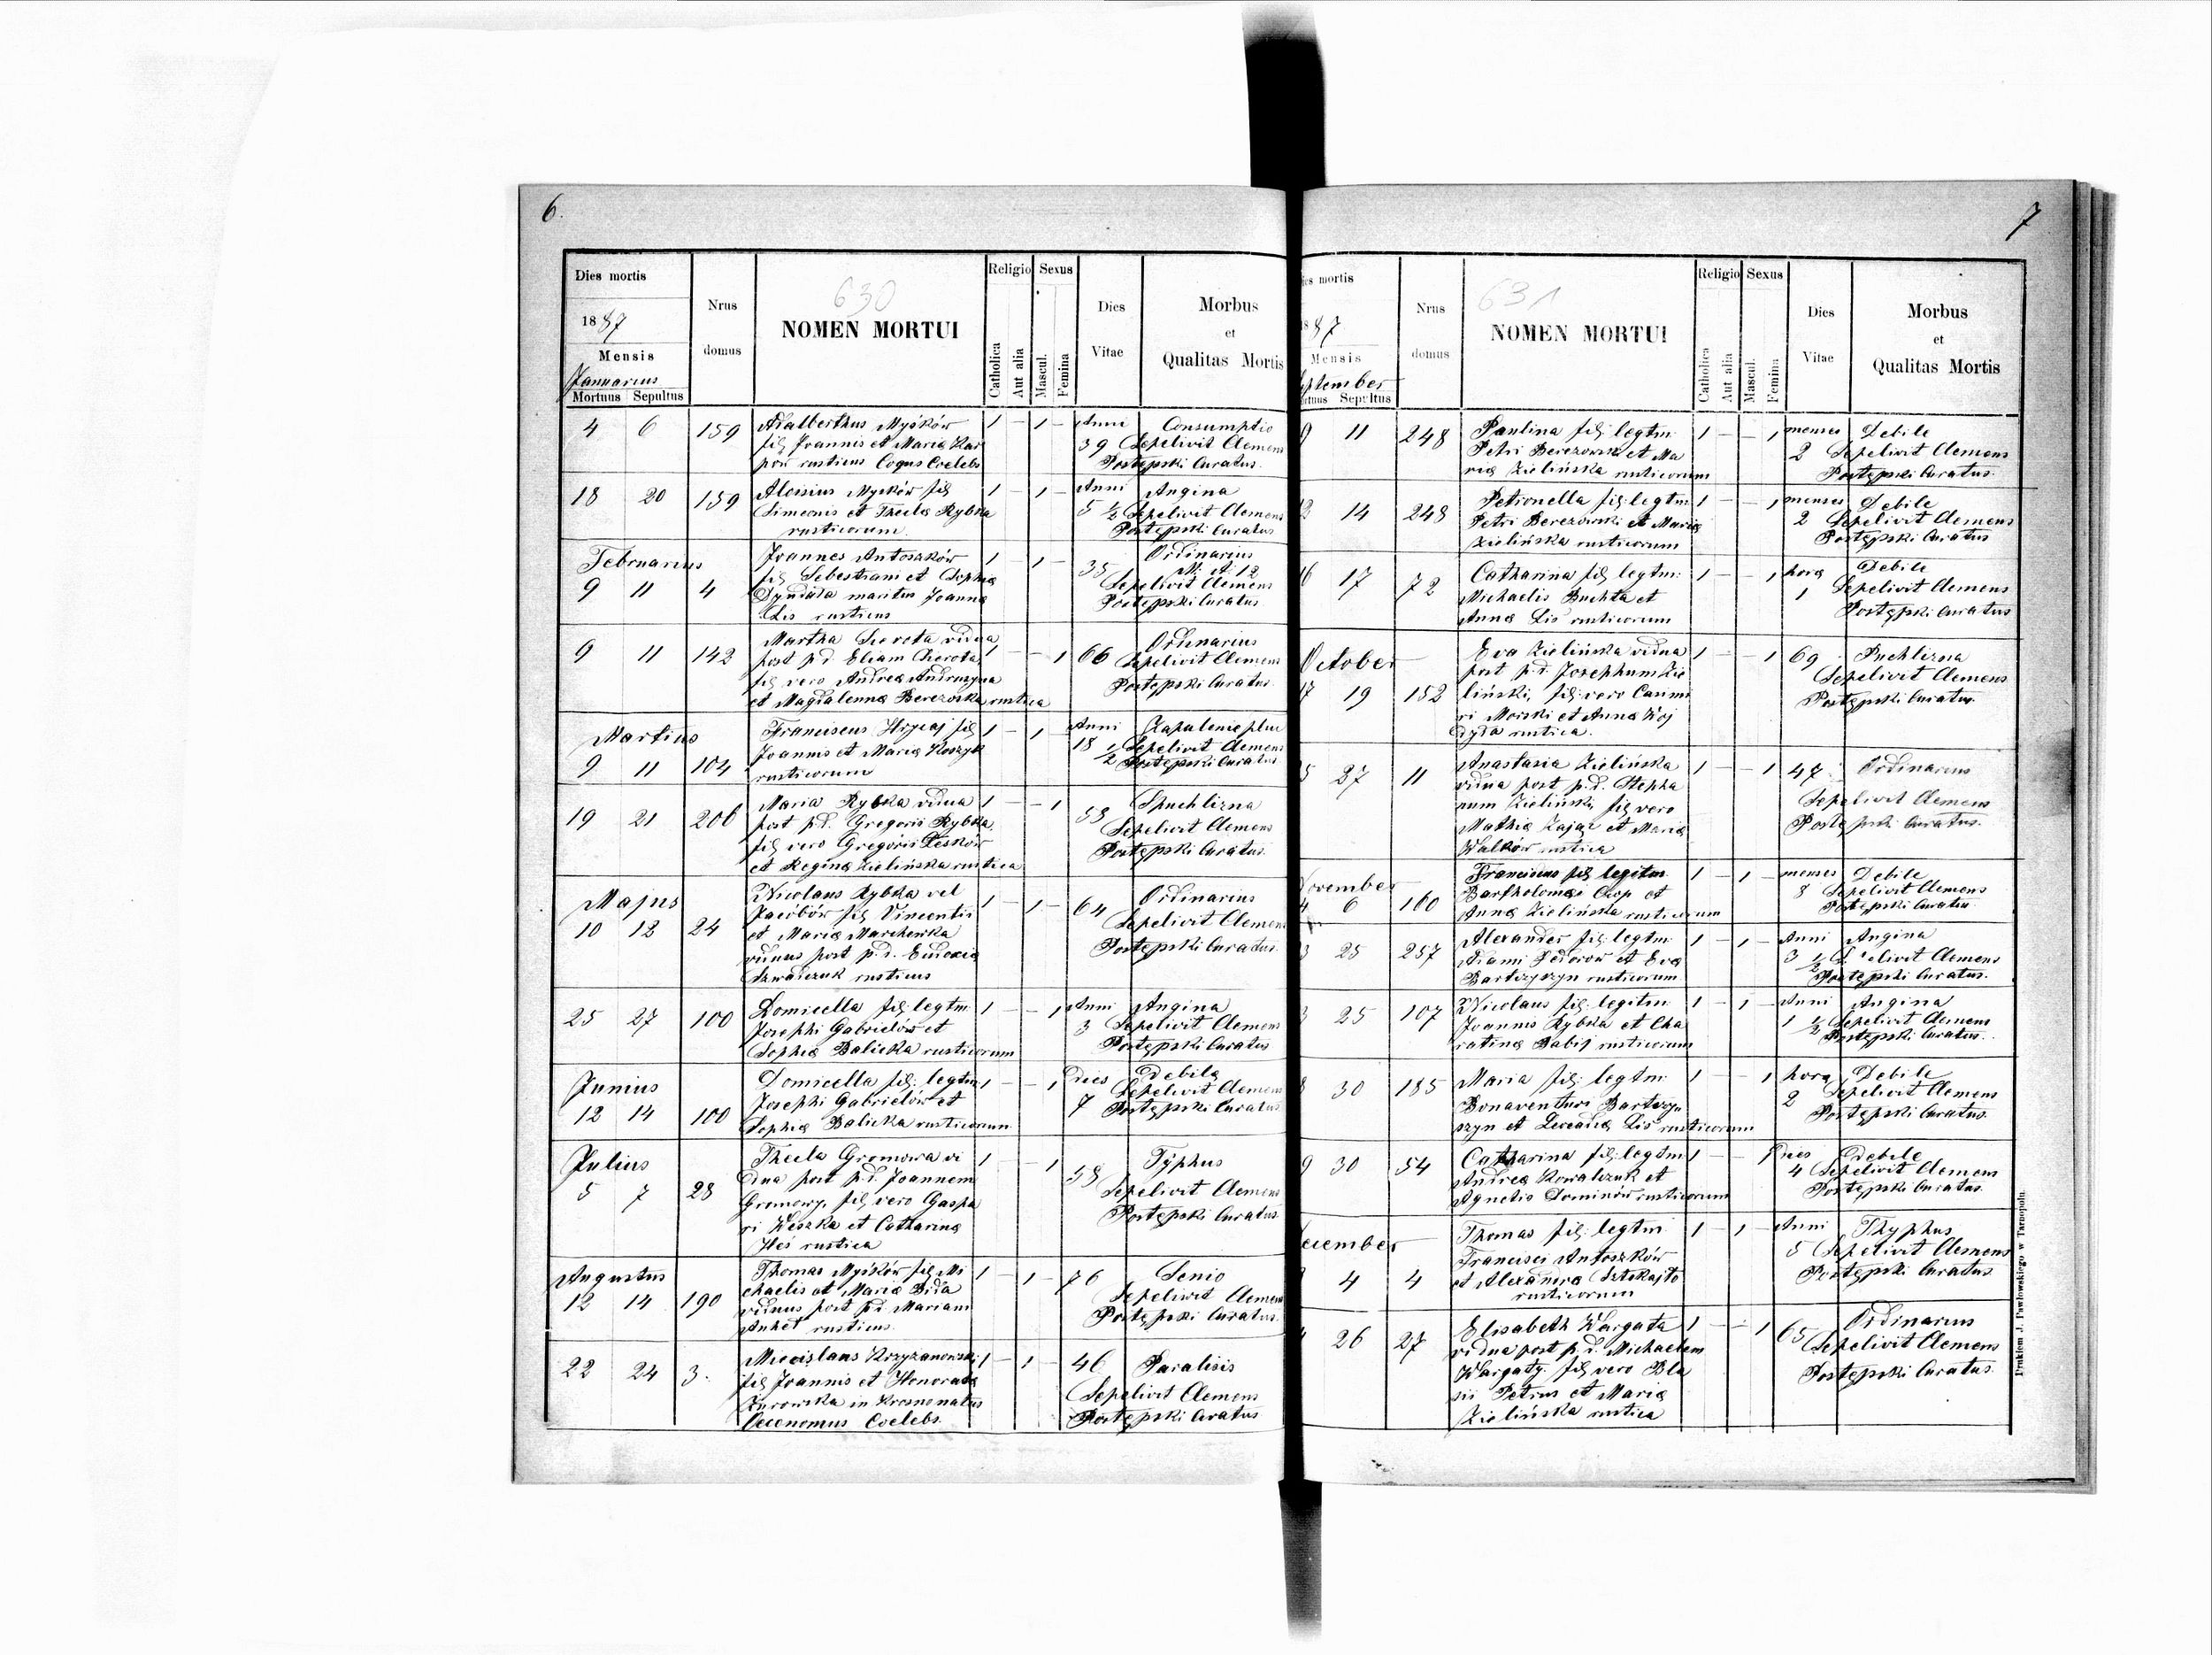 6.
Dies mortis
1887
Mensis
Januarius
Mortuus Sepultus
Nrus domus
630
NOMEN MORTUI
Religio Sexus
Catholica
Aut alia
Mascul.
Femina
Dies Vitae
Morbus
et
Qualitas Mortis
4 6 159 Adalberthus Myśków 1 – 1 – Anni Consumptio
fil Joannis et Maria Kar 39 Sepelivit Clemens
poń rusticus Coqus Coelebs Postępski Curatus.
18 20 159 Aloisius Myśków fil 1 – 1 – Anni Angina
Simeonis et Thecla Rybka 5 ½ Sepelivit Clemens
rusticorum Postępski Curatus
Februarius Joannes Antoszków 1 – 1 – 35 Ordinarius
fil Sebestiani et Sophia N: N: 12
9 11 4 Dyndała maritus Joanna Sepelivit Clemens
Lis rusticus Postępski Curatus
9 11 142 Martha Sierota vidua 1 – – 1 66 Ordinarius
post p.d. Eliam Sierota, Sepelivit Clemens
fil vero Andrea Andruszyna Postępski Curatus
et Magdalenna Berezoska rustica
Martius Franciscus Hrycaj fil 1 – 1 – Anni Zapalenie płuc
9 11 104 Joannis et Maria Koszyk 18 ½ Sepelivit Clemens
rusticorum Postępski Curatus
19 21 206 Maria Rybka vidua 1 – – 1 Spuchlizna
post p.d. Gregoris Rybka, Sepelivit Clemens
fil vero Gregoris Lesków Postępski Curatus.
et Regina Zielińska rustica
Majus Nicolaus Rybka vel 1 – 1 – 64 Ordinarius
10 12 24 Jacóbów fil Vincentis Sepelivit Clemens
et Maria Marchewka Postępski Curatus.
viduus post p.d. Eudoxia
rusticus
25 27 100 Domicella fil: legtm: 1 – – 1 Anni Angina
Josephi Gabrielów et 3 Sepelivit Clemens
Sophia Balicka rusticorum Postępski Curatus
Junius Domicella fil: legtm: 1 – – 1 Dies Debile
12 14 100 Josephi Gabrielów et 7 Sepelivit Clemens
Sophia Balicka rusticorum Postępski Curatus
Julius Thecla Gromowa vi 1 – 1 58 Typhus
5 7 28 dua post p.d. Joannem Sepelivit Clemens
Gromowy, fil vero Gaspa Postępski Curatus
ri Weszka et Catharina
rustica
Augustus Thomas Myśków fil Mi 1 – 1 – 76 Senio
12 14 190 chaelis et Maria Bida Sepelivit Clemens
viduus post p.d. Mariam Postępski Curatus.
rusticus.
22 24 3. Miecislaus Krzyżanowski 1 – 1 – 46 Paralisis
fil Joannis et Honorata Sepelivit Clemens
Żurowska in Krosno natus Postępski Curatus
Oeconomus Coelebs.
7
mortis
87
Mensis
ptember
Sepultus
Nrus domus
631
NOMEN MORTUI
Religio Sexus
Catholica
Aut alia
Mascul.
Femina
Dies Vitae
Morbus
et
Qualitas Mortis
9 11 248 Paulina fil: legtm: 1 – – 1 menses Debile
Petri Berezowski et Ma 2 Sepelivit Clemens
ria Zielińska rusticorum Postępski Curatus.
2 14 248 Petronella fil: legtm: 1 – – 1 menses Debile
Petri Berezowski et Maria 2 Sepelivit Clemens
Zielińska rusticorum Postępski Curatus
6 17 72 Catharina fil: legtm: 1 – – 1 hora Debile
Michaelis Buchta et 1 Sepelivit Clemens
Anna Lis rusticorum Postępski Curatus
October Eva Zielińska vidua 1 – – 1 69 Puchlizna
post p.d. Josephum Zie Sepelivit Clemens
17 19 152 liński, fil: vero Casimi Postępski Curatus.
ri Morski et Anna Woj
dyda rustica.
5 27 11 Anastasia Zielińska 1 – – 1 47 Ordinarius
vidua post p.d. Stepha Sepelivit Clemens
num Zieliński, fil vero Postępski Curatus.
Mathia Zając et Maria
Walków rustica
November Franciscus fil: legitm. 1 – 1 – menses Debile
4 6 160 Bartholomai Czop et 8 Sepelivit Clemens
Anna Zielińska rusticorum Postępski Curatus
3 25 257 Alexander fil: legtm: 1 – 1 – Anni Angina
Adami Fedorow et Eva 3 ½ Sepelivit Clemens
Bartczyszyn rusticorum Postępski Curatus.
3 25 107 Nicolaus fil: legitm: 1 – 1 – Anni Angina
Joannis Rybka et Cha 1 ½ Sepelivit Clemens
ratina Babij rusticorum Postępski Curatus.
8 30 185 Maria fil: legtm: 1 – – 1 hora Debile
Bonaventuri Bartczy 2 Sepelivit Clemens
szyn et Lis rusticorum Postępski Curatus.
9 30 54 Catharina fil: legtm: 1 – – 1 Dies Debile
Andrea Kowalczuk et 4 Sepelivit Clemens
Agnetis Dominów rusticorum Postępski Curatus.
ecember Thomas fil: legtm: 1 – 1 – Anni Thyphus
Francisci Antoszków 5 Sepelivit Clemens
4 4 et Alexandra Sztokajto Postępski Curatus
rusticorum
26 27 Elisabeth Wargata 1 – – 1 65 Ordinarius
vidua post p.d. Michaelem Sepelivit Clemens
Wargaty. fil vero Bla Postępski Curatus.
sii Petrus et Maria
Zielińska rustica
Drukiem J. Pawłowskiego w Tarnopolu.